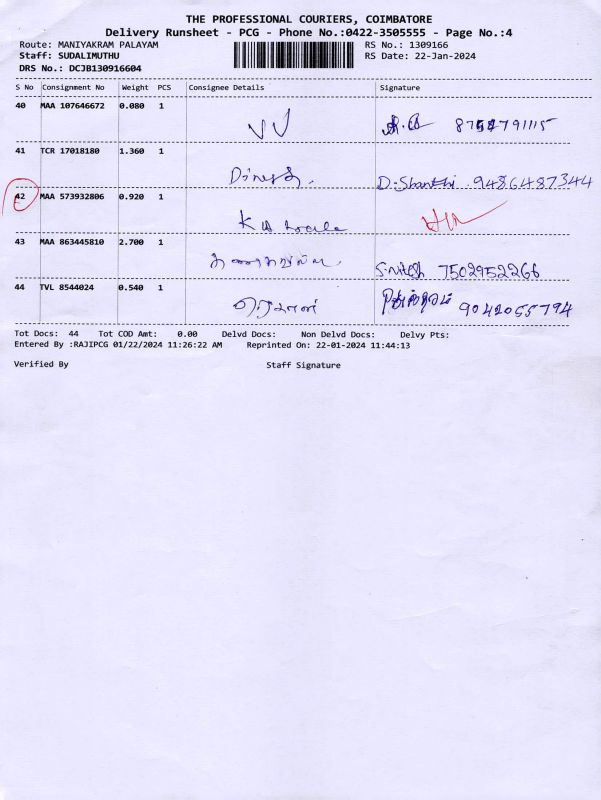 THE PROFESSIONAL COURIERS, COIMBATORE
Delivery Runsheet - PCG - Phone No.:0422-3505555 - Page No.:4
Route: MANIYAKRAM PALAYAM RS No.: 1309166
Staff: SUDALIMUTHU RS Date: 22-Jan-2024
DRS No.: DCJB130916604
S No Consignment No Weight PCS Consignee Details Signature
40 MAA 107646672 0.080 1
VJ 8754791115
41 TCR 17018180 1.360 1
Dinesh. D.Shanthi 9486487344
42 MAA 573932806 0.920 1
43 MAA 863445810 2.700 1
S.nitesh 7502952266
44 TVL 8544024 0.540 1
9042055794
Tot Docs: 44 Tot COD Amt: 0.00 Delvd Docs: Non Delvd Docs: Delvy Pts:
Entered By :RAJIPCG 01/22/2024 11:26:22 AM Reprinted On: 22-01-2024 11:44:13
Verified By Staff Signature